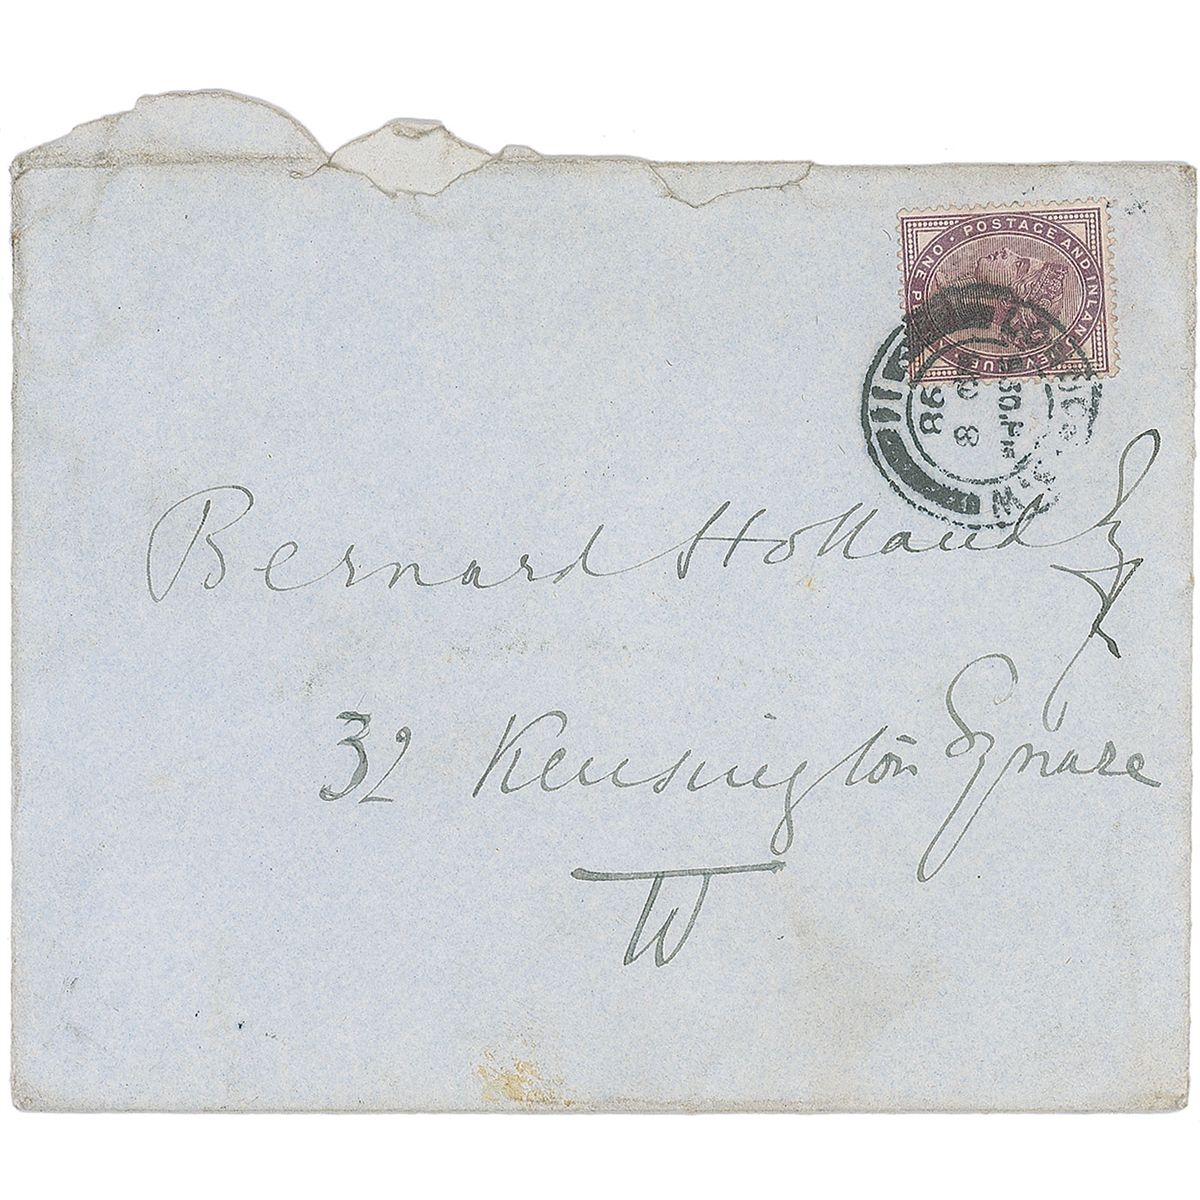 POSTAGE AND INLAND REVENUE · ONE PENNY ·
30.PM
8
98
Bernard Holland Esq
32 Kensington Square
W